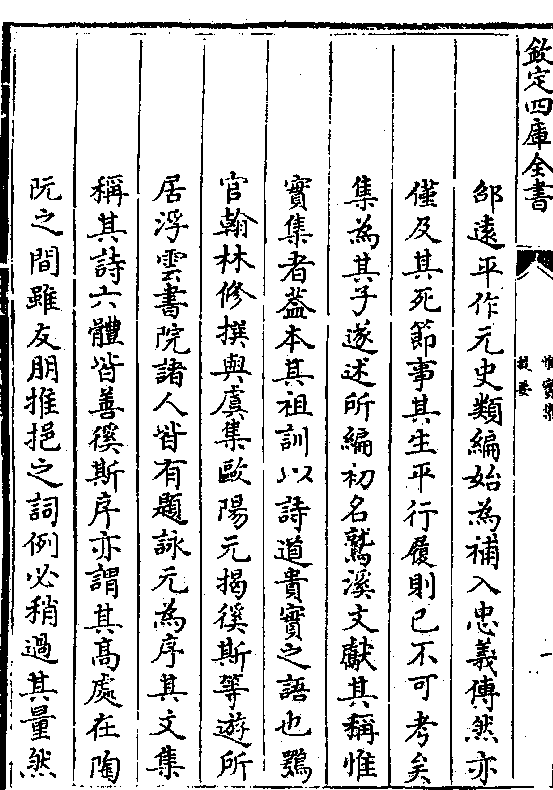 欽定四庫全書
惟實集
提要
一
邵遠平作元史類編始為補入忠義傳然亦
僅及其死節事其生平行履則已不可考矣
集為其子遂述所編初名鷲溪文獻其稱惟
實集者葢本其祖訓以詩道貴實之語也鶚
官翰林修撰與虞集歐陽元揭徯斯等遊所
居浮雲書院諸人皆有題詠元為序其文集
稱其詩六體皆善徯斯序亦謂其髙處在陶
阮之間雖友朋推挹之詞例必稍過其量然